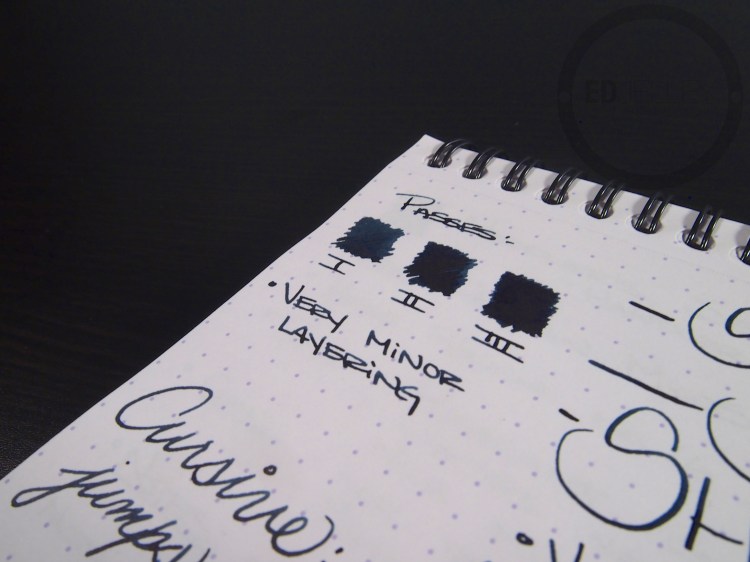 PASSES:-
I II III
• VERY MINOR
LAYERING
Cursive: